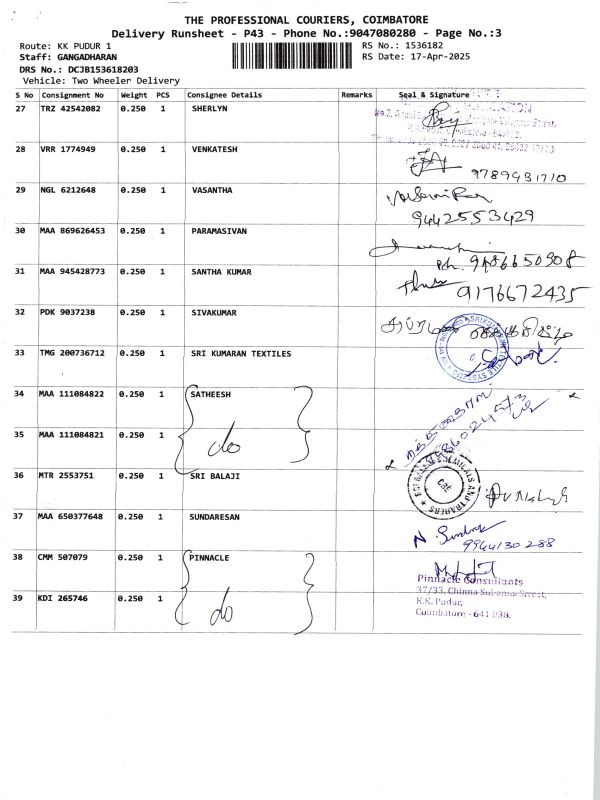 THE PROFESSIONAL COURIERS, COIMBATORE
Delivery Runsheet - P43 - Phone No.:9047080280 - Page No.:3
Route: KK PUDUR 1
Staff: GANGADHARAN
DRS No.: DCJB153618203
Vehicle: Two Wheeler Delivery
RS No.: 1536182
RS Date: 17-Apr-2025
S No Consignment No Weight PCS Consignee Details Remarks Seal & Signature
27 TRZ 42542082 0.250 1 SHERLYN
28 VRR 1774949 0.250 1 VENKATESH
9789431710
29 NGL 6212648 0.250 1 VASANTHA
9442553429
30 MAA 869626453 0.250 1 PARAMASIVAN
Ph. 9486650908
31 MAA 945428773 0.250 1 SANTHA KUMAR
9176672435
32 PDK 9037238 0.250 1 SIVAKUMAR
33 TMG 200736712 0.250 1 SRI KUMARAN TEXTILES
34 MAA 111084822 0.250 1 SATHEESH
35 MAA 111084821 0.250 1 do
36 MTR 2553751 0.250 1 SRI BALAJI
SRI BALAJI CHEMICALS AND TRADERS
CBE
37 MAA 650377648 0.250 1 SUNDARESAN
9944130288
38 CMM 507079 0.250 1 PINNACLE
39 KDI 265746 0.250 1 do
Pinnacle Consultants
37/33, Chinna Subanna Street,
K.K. Pudur,
Coimbatore - 641 038.